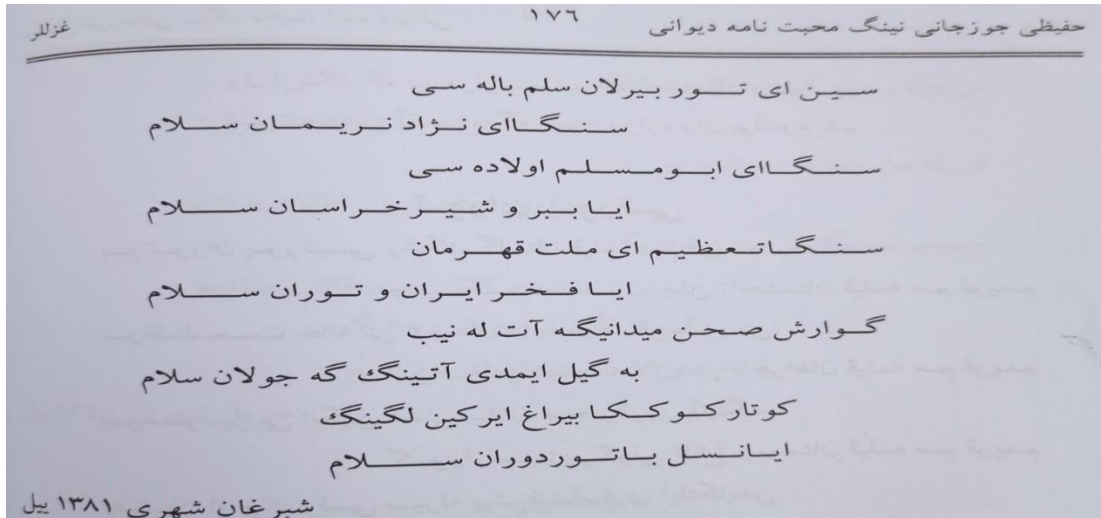 حفیظی جوزجانی نینگ محبت نامه دیوانی ۱۷۶ غزللر
سین ای تور بیرلان سلم باله سی
سنگاای نژاد نریمان سلام
سنگاای ابومسلم اولاده سی
ایا ببر و شیر خراسان سلام
سنگا تعظیم ای ملت قهرمان
ایا فخر ایران و توران سلام
گوارش صحن میدانیگه آت له نیب
به گیل ایمدی آتینگ گه جولان سلام
کوتار کوککا بیراغ ایرکین لگینگ
ایا نسل باتور دوران سلام
شبرغان شهری ۱۳۸۱ ییل